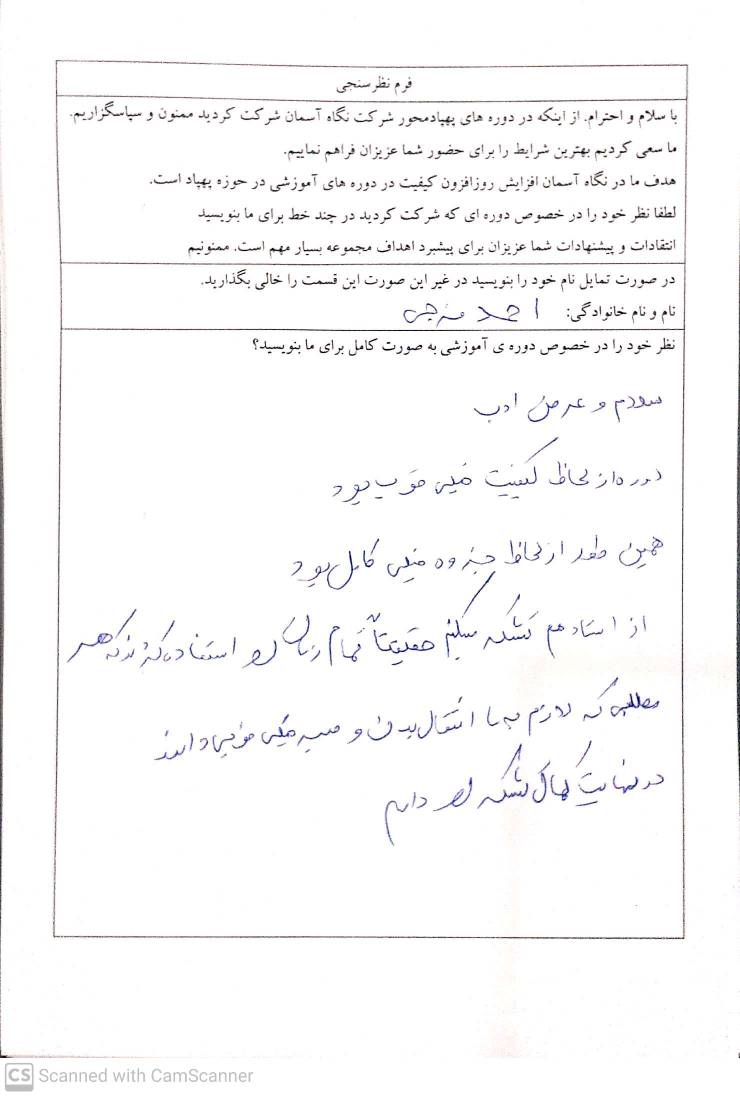 فرم نظرسنجی
با سلام و احترام. از اینکه در دوره های پهپادمحور شرکت نگاه آسمان شرکت کردید ممنون و سپاسگزاریم.
ما سعی کردیم بهترین شرایط را برای حضور شما عزیزان فراهم نماییم.
هدف ما در نگاه آسمان افزایش روزافزون کیفیت در دوره های آموزشی در حوزه پهپاد است.
لطفا نظر خود را در خصوص دوره ای که شرکت کردید در چند خط برای ما بنویسید
انتقادات و پیشنهادات شما عزیزان برای پیشبرد اهداف مجموعه بسیار مهم است. ممنونیم
در صورت تمایل نام خود را بنویسید در غیر این صورت این قسمت را خالی بگذارید.
نام و نام خانوادگی: احمد
نظر خود را در خصوص دوره ی آموزشی به صورت کامل برای ما بنویسید؟
سلام و عرض ادب
دوره از لحاظ کیفیت خیلی خوب بود
همین طور از لحاظ جزوه خیلی کامل بود
از استاد هم تشکر میکنم حقیقتاً تمام استفاده کردند که هر
مطلبی که لازم به ما انتقال بدن و خیلی
در نهایت کمال تشکر رو دارم
CS Scanned with CamScanner